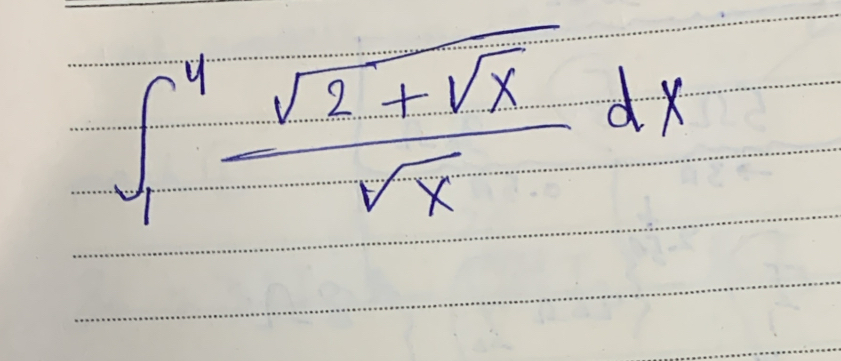 ∫₁⁴ √(2 + √x) / √x dx